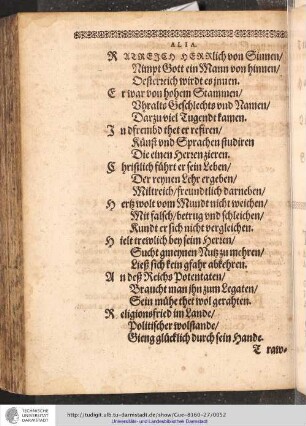 ALIA.
RATREJCH HERRlich von Sinnen/
Nimpt Gott ein Mann von hinnen/
Oesterreich wirdt es jnnen.
Er war von hohem Stammen/
Vhralts Geschlechts vnd Namen/
Darzu viel Tugendt kamen.
Jn d frembd thet er resiren/
Künst vnd Sprachen studiren
Die einen Herren zieren.
Christlich führt er sein Leben/
Der reynen Lehr ergeben/
Miltreich/freundtlich darneben/
Hertz wolt vom Mundt nicht weichen/
Mit falsch/betrug vnd schleichen/
Kundt er sich nicht vergleichen.
Hielt trewlich bey seim Herren/
Sucht gmeynen Nutz zu mehren/
Ließ sich kein gfahr abkehren.
An deß Reichs Potentaten/
Braucht man jhn zum Legaten/
Sein mühe thet wol gerahten.
Religionsfried im Lande/
Politischer wolstande/
Gieng glücklich durch sein Hande.
Traw-
TECHNISCHE
UNIVERSITÄT
DARMSTADT
http://tudigit.ulb.tu-darmstadt.de/show/Gue-8360-27/0052
Universitäts- und Landesbibliothek Darmstadt